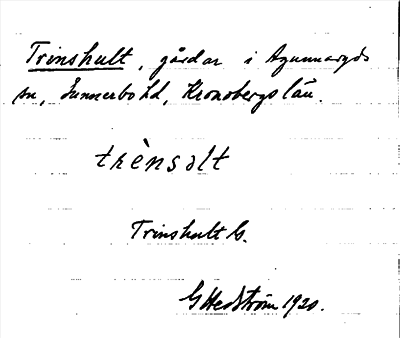 Trinshult, gårdar i Agunnaryds
sn, Sunnerbo hd, Kronobergs län.
trènsalt
Trinshult G.
G Hedström 1920.